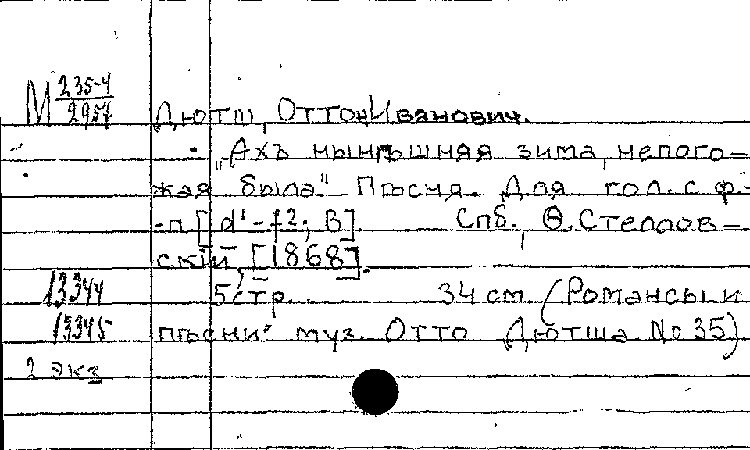 М 235-4/2957 Дютш, Оттон Иванович.
"Ахъ нынѣшняя зима, непого-
жая была" Пѣсня. Для гол. с ф.-
-п [d¹-f²; B]. Спб. Ѳ. Стеллов-
скій, [1868].
13344 5 стр. 34 см (Романсы и
13345 пѣсни: муз. Отто Дютша № 35)
2 экз